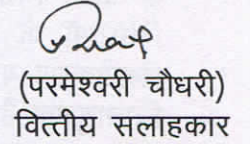 (परमेश्वरी चौधरी)
वित्तीय सलाहकार